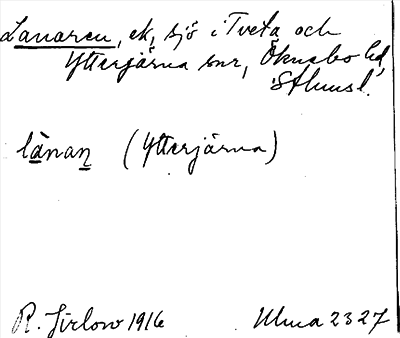 Lanaren, ek, sjö i Tveta och
Ytterjärna snr, Öknebo hd,
Sthmsl.
lànan (Ytterjärna)
R. Jirlow 1916 Ulma 2327